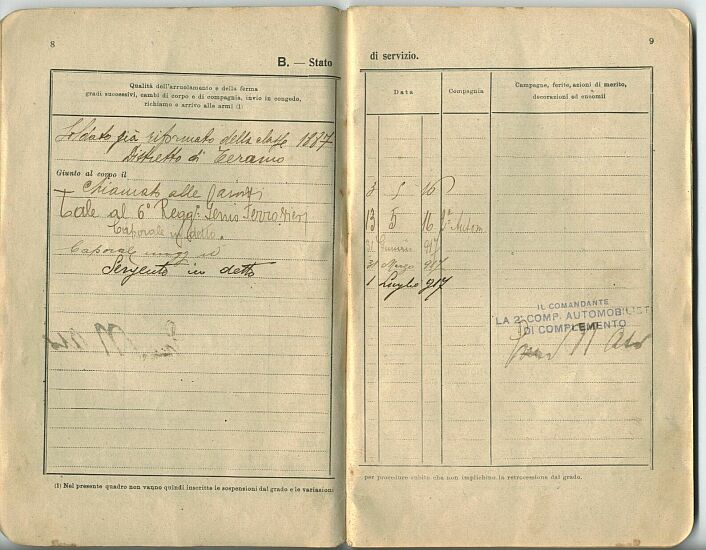 8
B. — Stato
Qualità dell'arruolamento e della ferma
gradi successivi, cambi di corpo e di compagnia, invio in congedo,
richiamo e arrivo alle armi (1)
Soldato già riformato della classe 1887
Distretto di Teramo
Giunto al corpo il
Chiamato alle
Tale al 6° Regg. Genio Ferrovieri
Caporale in detto
Caporale magg id
Sergente in detto
(1) Nel presente quadro non vanno quindi inscritte le sospensioni dal grado e le variazioni
9
di servizio.
Data
Compagnia
Campagne, ferite, azioni di merito,
decorazioni ed encomii
3 5 16
13 5 16 Autom
31 Gennaio 917
31 Marzo 917
1 Luglio 917
IL COMANDANTE
LA 2ª COMP. AUTOMOBILISTI
DI COMPLEMENTO
per procedure subite che non implichino la retrocessione dal grado.